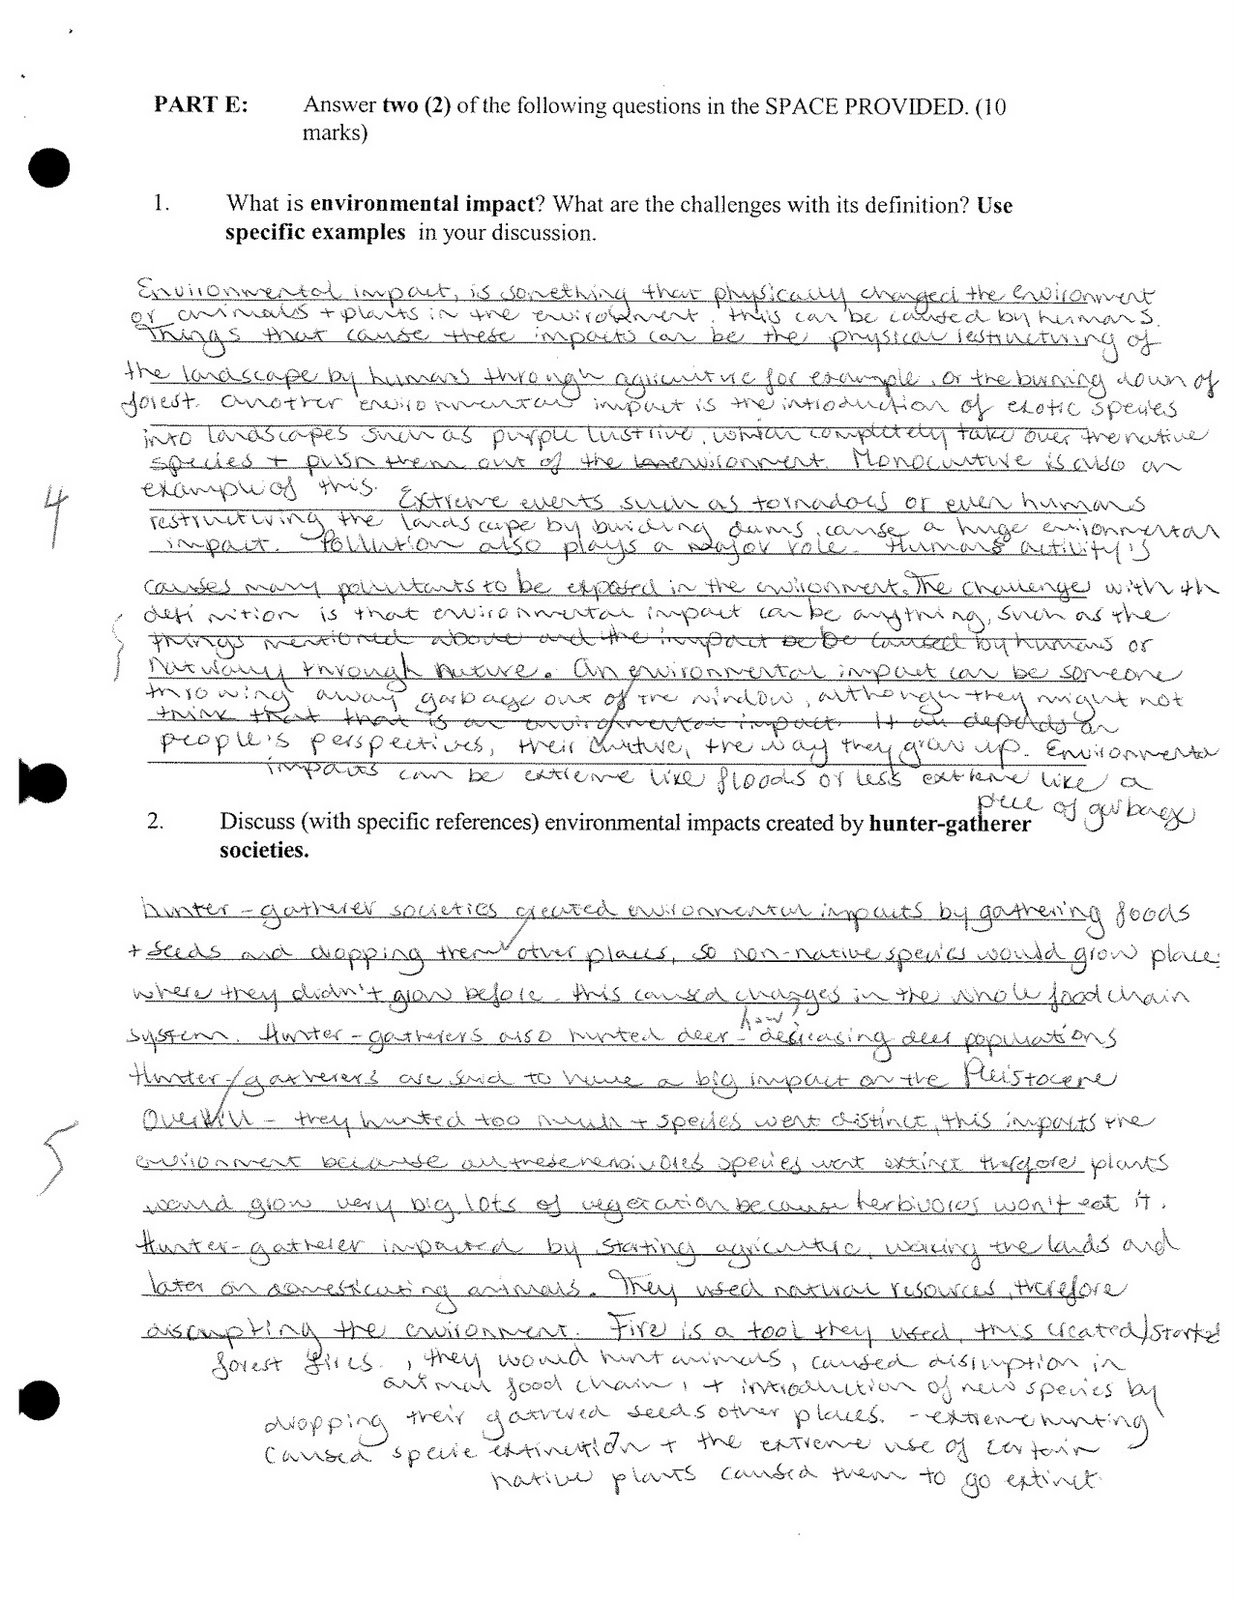 PART E: Answer two (2) of the following questions in the SPACE PROVIDED. (10
marks)
1. What is environmental impact? What are the challenges with its definition? Use
specific examples in your discussion.
Environmental impact, is something that physically changed the environment
or animals + plants in the enviroment. this can be caused by humans.
Things that cause these impacts can be the physical restructuring of
the landscape by humans through agriculture for example, or the burning down of
forest. another environmental impact is the introduction of exotic species
into landscapes such as purple lustrive, which completely take over the native
species + push them out of the environment. Monoculture is also an
example of this. Extreme events such as tornadoes or even humans
restructuring the landscape by building dams, cause a huge enionmental
impact. Pollution also plays a major role. Humans activity's
4
causes many pollutants to be exposed in the environment. The challenges with th
definition is that environmental impact can be anything, such as the
things mentioned above and the impact be caused by humans or
naturally through nature. An environmental impact can be someone
throwing away garbage out of the window, although they might not
think that that is an environmental impact. It all depends on
people's perspectives, their culture, the way they grow up. Environmental
impacts can be extreme like floods or less extreme like a
piece of garbage
2. Discuss (with specific references) environmental impacts created by hunter-gatherer
societies.
hunter-gatherer societies created environmental impacts by gathering foods
+ seeds and dropping them other places, so non-native species would grow place
where they didn't grow before. this caused changes in the whole food chain
how?
system. Hunter-gatherers also hunted deer - decreasing deer populations
Hunter/gatherers are said to have a big impact on the Pleistocene
Overkill - they hunted too much + species went distinct, this impacts the
5
environment because all these herbivores species went extinct therefore plants
would grow very big lots of vegetation because herbivores won't eat it.
Hunter-gatherer impacted by stating agriculture, working the lands and
later on domesticating animals. They used natural resources, therefore
disrupting the environment. Fire is a tool they used, this created/started
forest fires. , they would hunt animals, caused disruption in
animal food chain, + introduction of new species by
dropping their gathered seeds other places. - extreme hunting
caused specie extinction + the extreme use of certain
native plants caused them to go extinct.